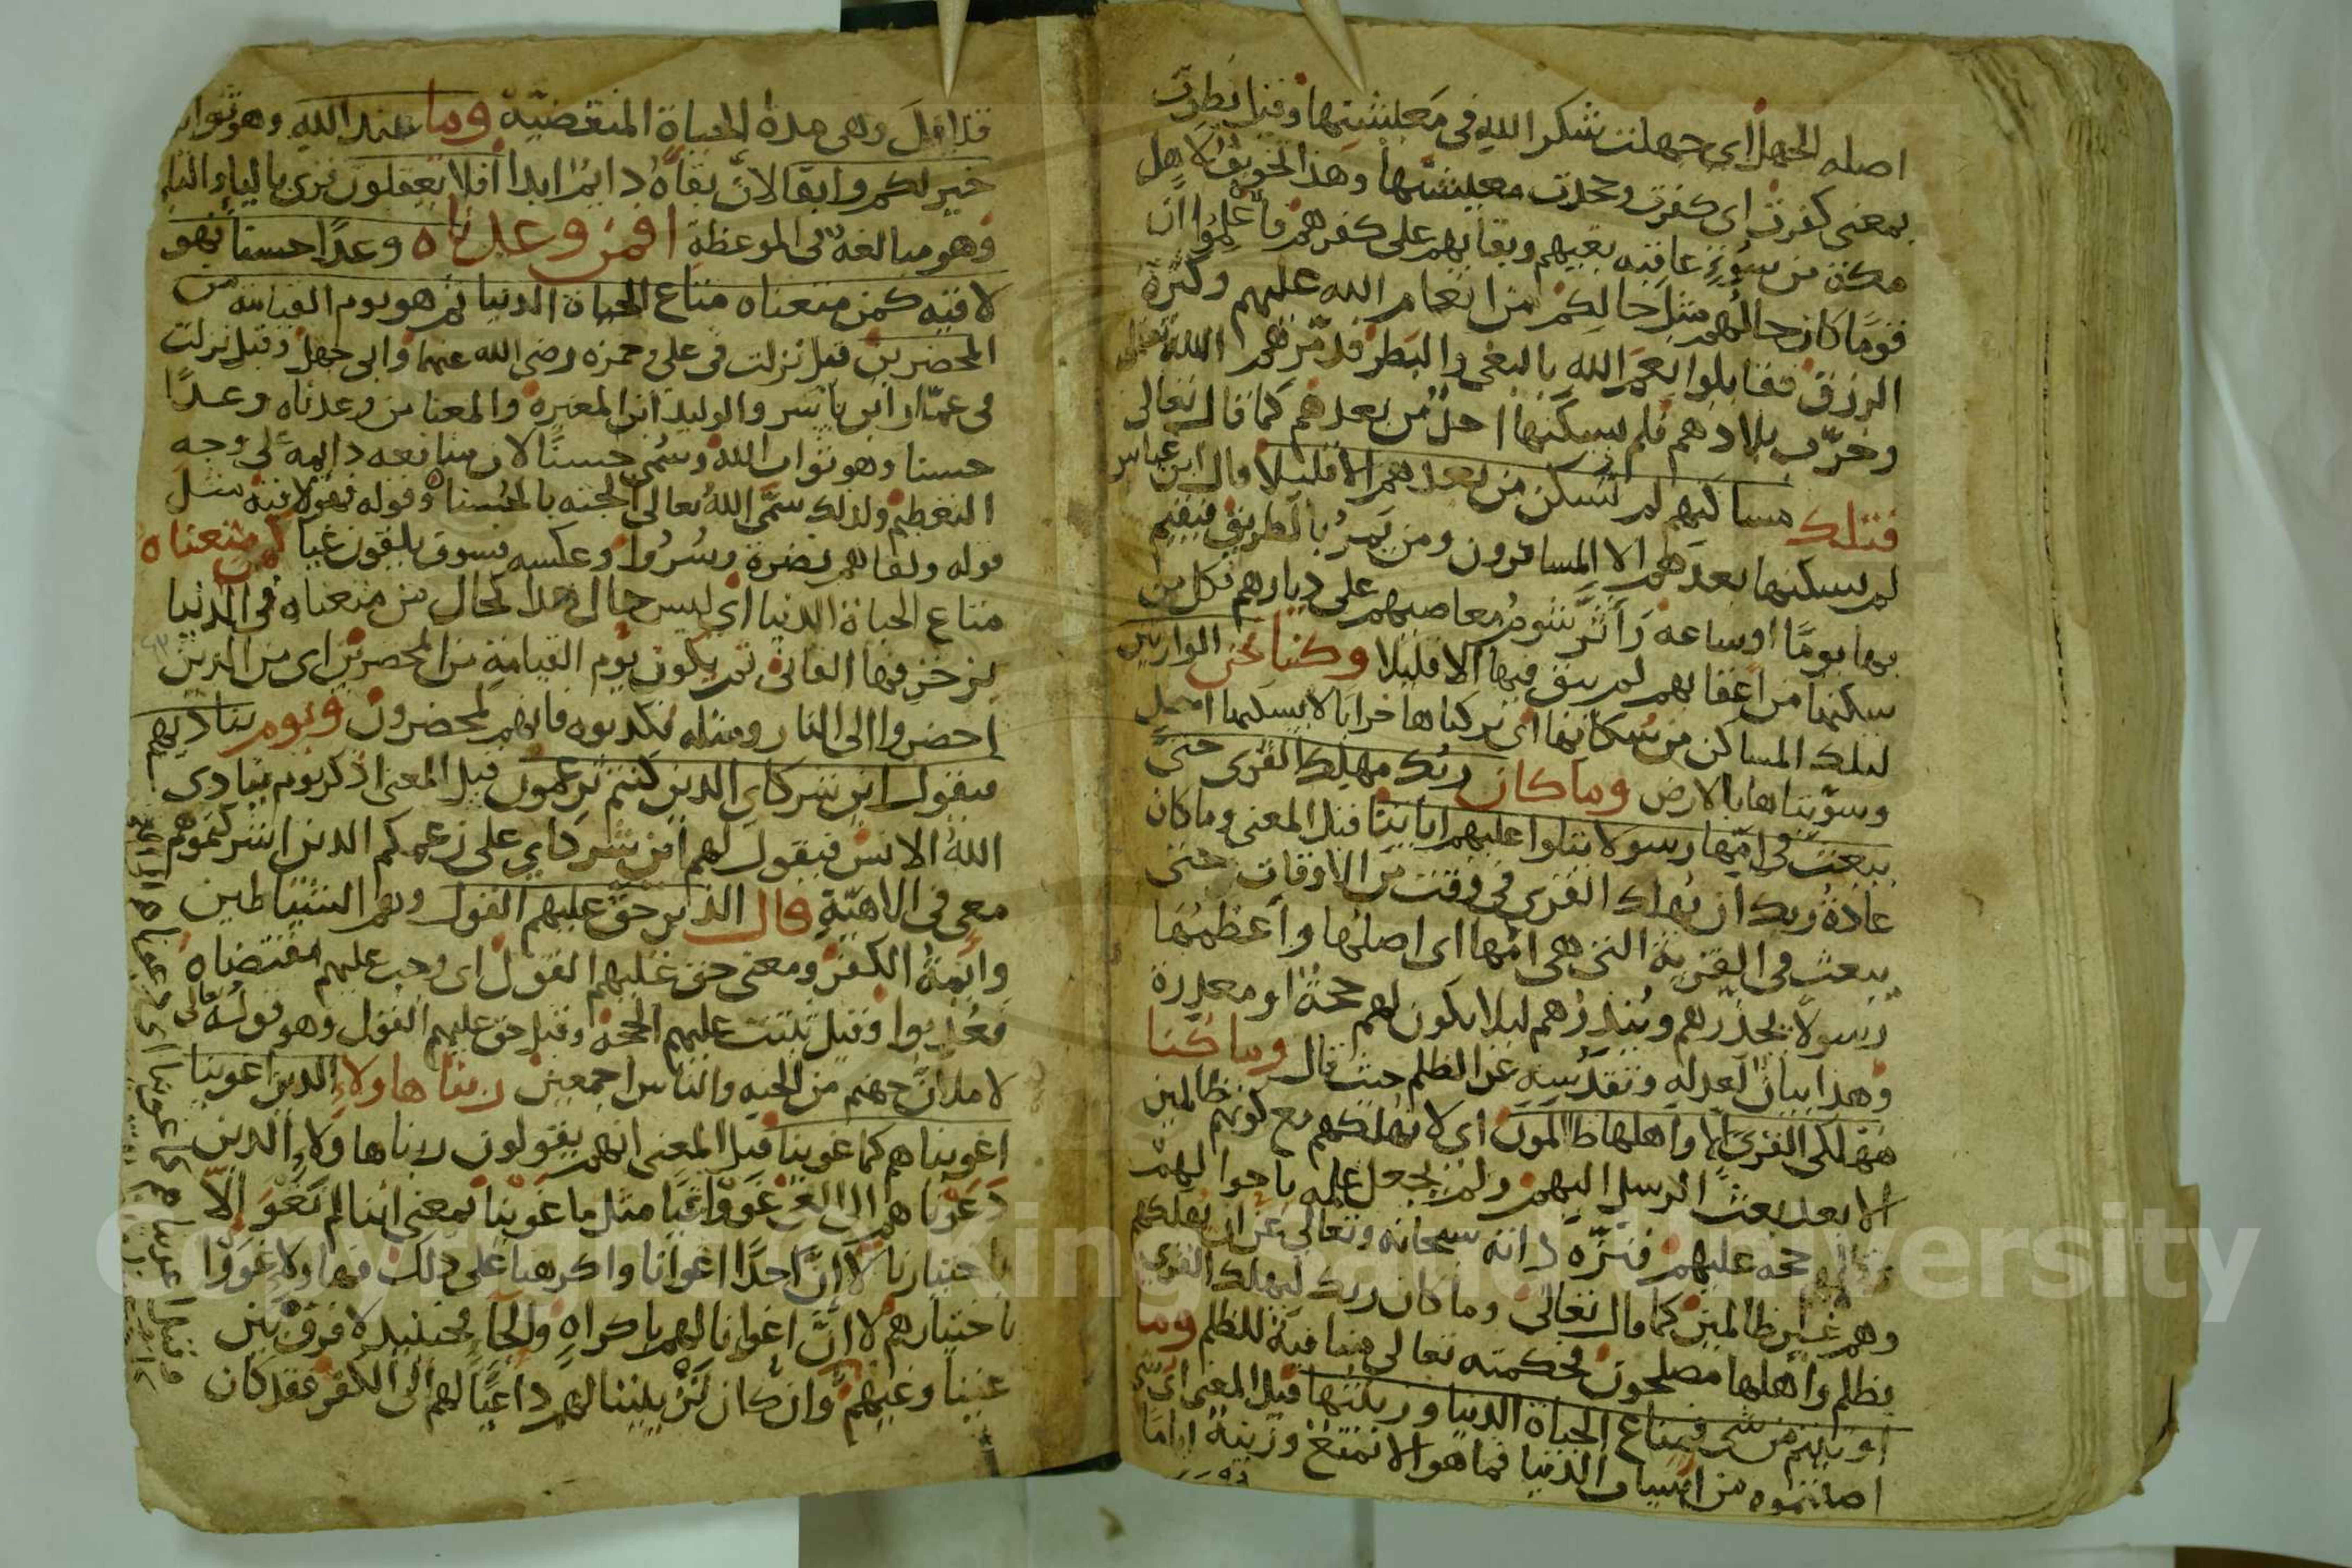 اصله الجهل اى جهلت شكر الله فى معيشتها وقيل بطرت
بمعنى كفرت اى كفرت وجحدت معيشتها وهذا تخويف لاهل
مكة من سوء عاقبة بغيهم وبقايهم على كفرهم فاعلموا ان
قوما كان حالهم مثل حالكم من انعام الله عليهم وكثرة
الرزق فقابلوا نعم الله بالبغى والبطر فدمرهم الله تعالى
وخرب بلادهم فلم يسكنها احد من بعدهم كما قال تعالى
فتلك مساكنهم لم تسكن من بعدهم الا قليلا قال ابن عباس
لم يسكنها بعدهم الا المسافرون ومن يمر بالطريق فيقيم
بها يوما او ساعة واثر شوم معاصيهم على ديارهم فكل من
سكنها من اعقابهم لم يبق فيها الا قليلا وكنا نحن الوارثين
لتلك المساكن من سكانها اى تركناها خرابا لا يسكنها احد
وسويناها بالارض وما كان ربك مهلك القرى حتى
يبعث فى امها رسولا يتلوا عليهم اياتنا قيل المعنى وما كان
عادة ربك ان يهلك القرى فى وقت من الاوقات حتى
يبعث فى القرية التى هى امها اى اصلها واعظمها
رسولا يحذرهم وينذرهم ليلا يكون لهم حجة او معذرة
وهذا بيان لعدله وتقديسه عن الظلم حيث قال وما كنا
مهلكى القرى الا واهلها ظالمون اى لا نهلكهم مع كونهم ظالمين
الا بعد بعث الرسل اليهم ولم يجعل علمه باحوالهم
حجة عليهم فنزه ذاته سبحانه وتعالى عن ان يهلكهم
وهم غير ظالمين كما قال تعالى وما كان ربك ليهلك القرى
بظلم واهلها مصلحون فحكمته تعالى منافية للظلم وما
اوتيتم من شى فمتاع الحياة الدنيا وزينتها قيل المعنى اى شى
اصبتموه من اسباب الدنيا فما هو الا تمتع وزينة اياما
قلايل وهى مدة الحياة المنقضية وما عند الله وهو ثوابه
خير لكم وابقا لان بقاه دايم ابدا افلا تعقلون قرى بالياء والتاء
وهو مبالغة فى الموعظة افمن وعدناه وعدا حسنا فهو
لاقيه كمن متعناه متاع الحياة الدنيا ثم هو يوم القيامة من
المحضرين قيل نزلت فى على وحمزه رضى الله عنهما وابى جهل وقيل نزلت
فى عمار ابن ياسر والوليد ابن المغيرة والمعنا من وعدناه وعدا
حسنا وهو ثواب الله وسمى حسنا لان منافعه دايمة على وجه
التعظيم ولذلك سمى الله تعالى الجنه بالحسنا وقوله فهو لاقيه مثل
قوله ولقاهم نضرة وسرورا وعكسه فسوف يلقون غيا كمن متعناه
متاع الحياة الدنيا اى ليس حال هذا كحال من متعناه فى الدنيا
بزخرفها الفانى ثم يكون يوم القيامة من المحضرين اى من الذين
احضروا الى النار ومثله فكذبوه فانهم لمحضرون ويوم يناديهم
فيقول اين شركاى الذين كنتم تزعمون قيل المعنى اذكر يوم ينادى
الله الانس فيقول لهم اين شركاي على زعمكم الذين اشركتموهم
معى فى الاهية قال الذين حق عليهم القول وهم الشياطين
وايمة الكفر ومعنى حق عليهم القول اى وجب عليهم مقتضاه
فعذبوا وقيل ثبتت عليهم الحجة وقيل حق عليهم القول وهو قوله تعالى
لاملان جهنم من الجنه والناس اجمعين ربنا هاولاء الذين اغوينا
اغويناهم كما غوينا قيل المعنى انهم يقولون ربنا هاولاء الذين
دعوناهم الى الغى غووا غيا مثل ما غوينا بمعنى اننا لم نغو الا
باختيارنا لا ان احدا اغوانا واكرهنا على ذلك فهاولاء غووا
باختيارهم لا ان اغوانا لهم باكراه والجاء فحينيذ لا فرق بين
غينا وغيهم وان كان تزيننا لهم داعيا لهم الى الكفر فقد كان